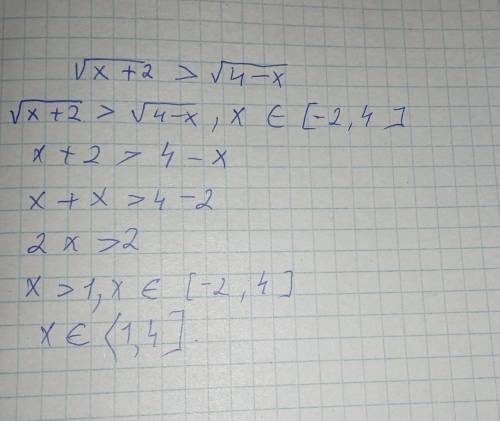 √x+2 > √4-x
√x+2 > √4-x, x ∈ [-2, 4]
x + 2 > 4 - x
x + x > 4 - 2
2 x > 2
x > 1, x ∈ [-2, 4]
x ∈ ⟨1, 4].